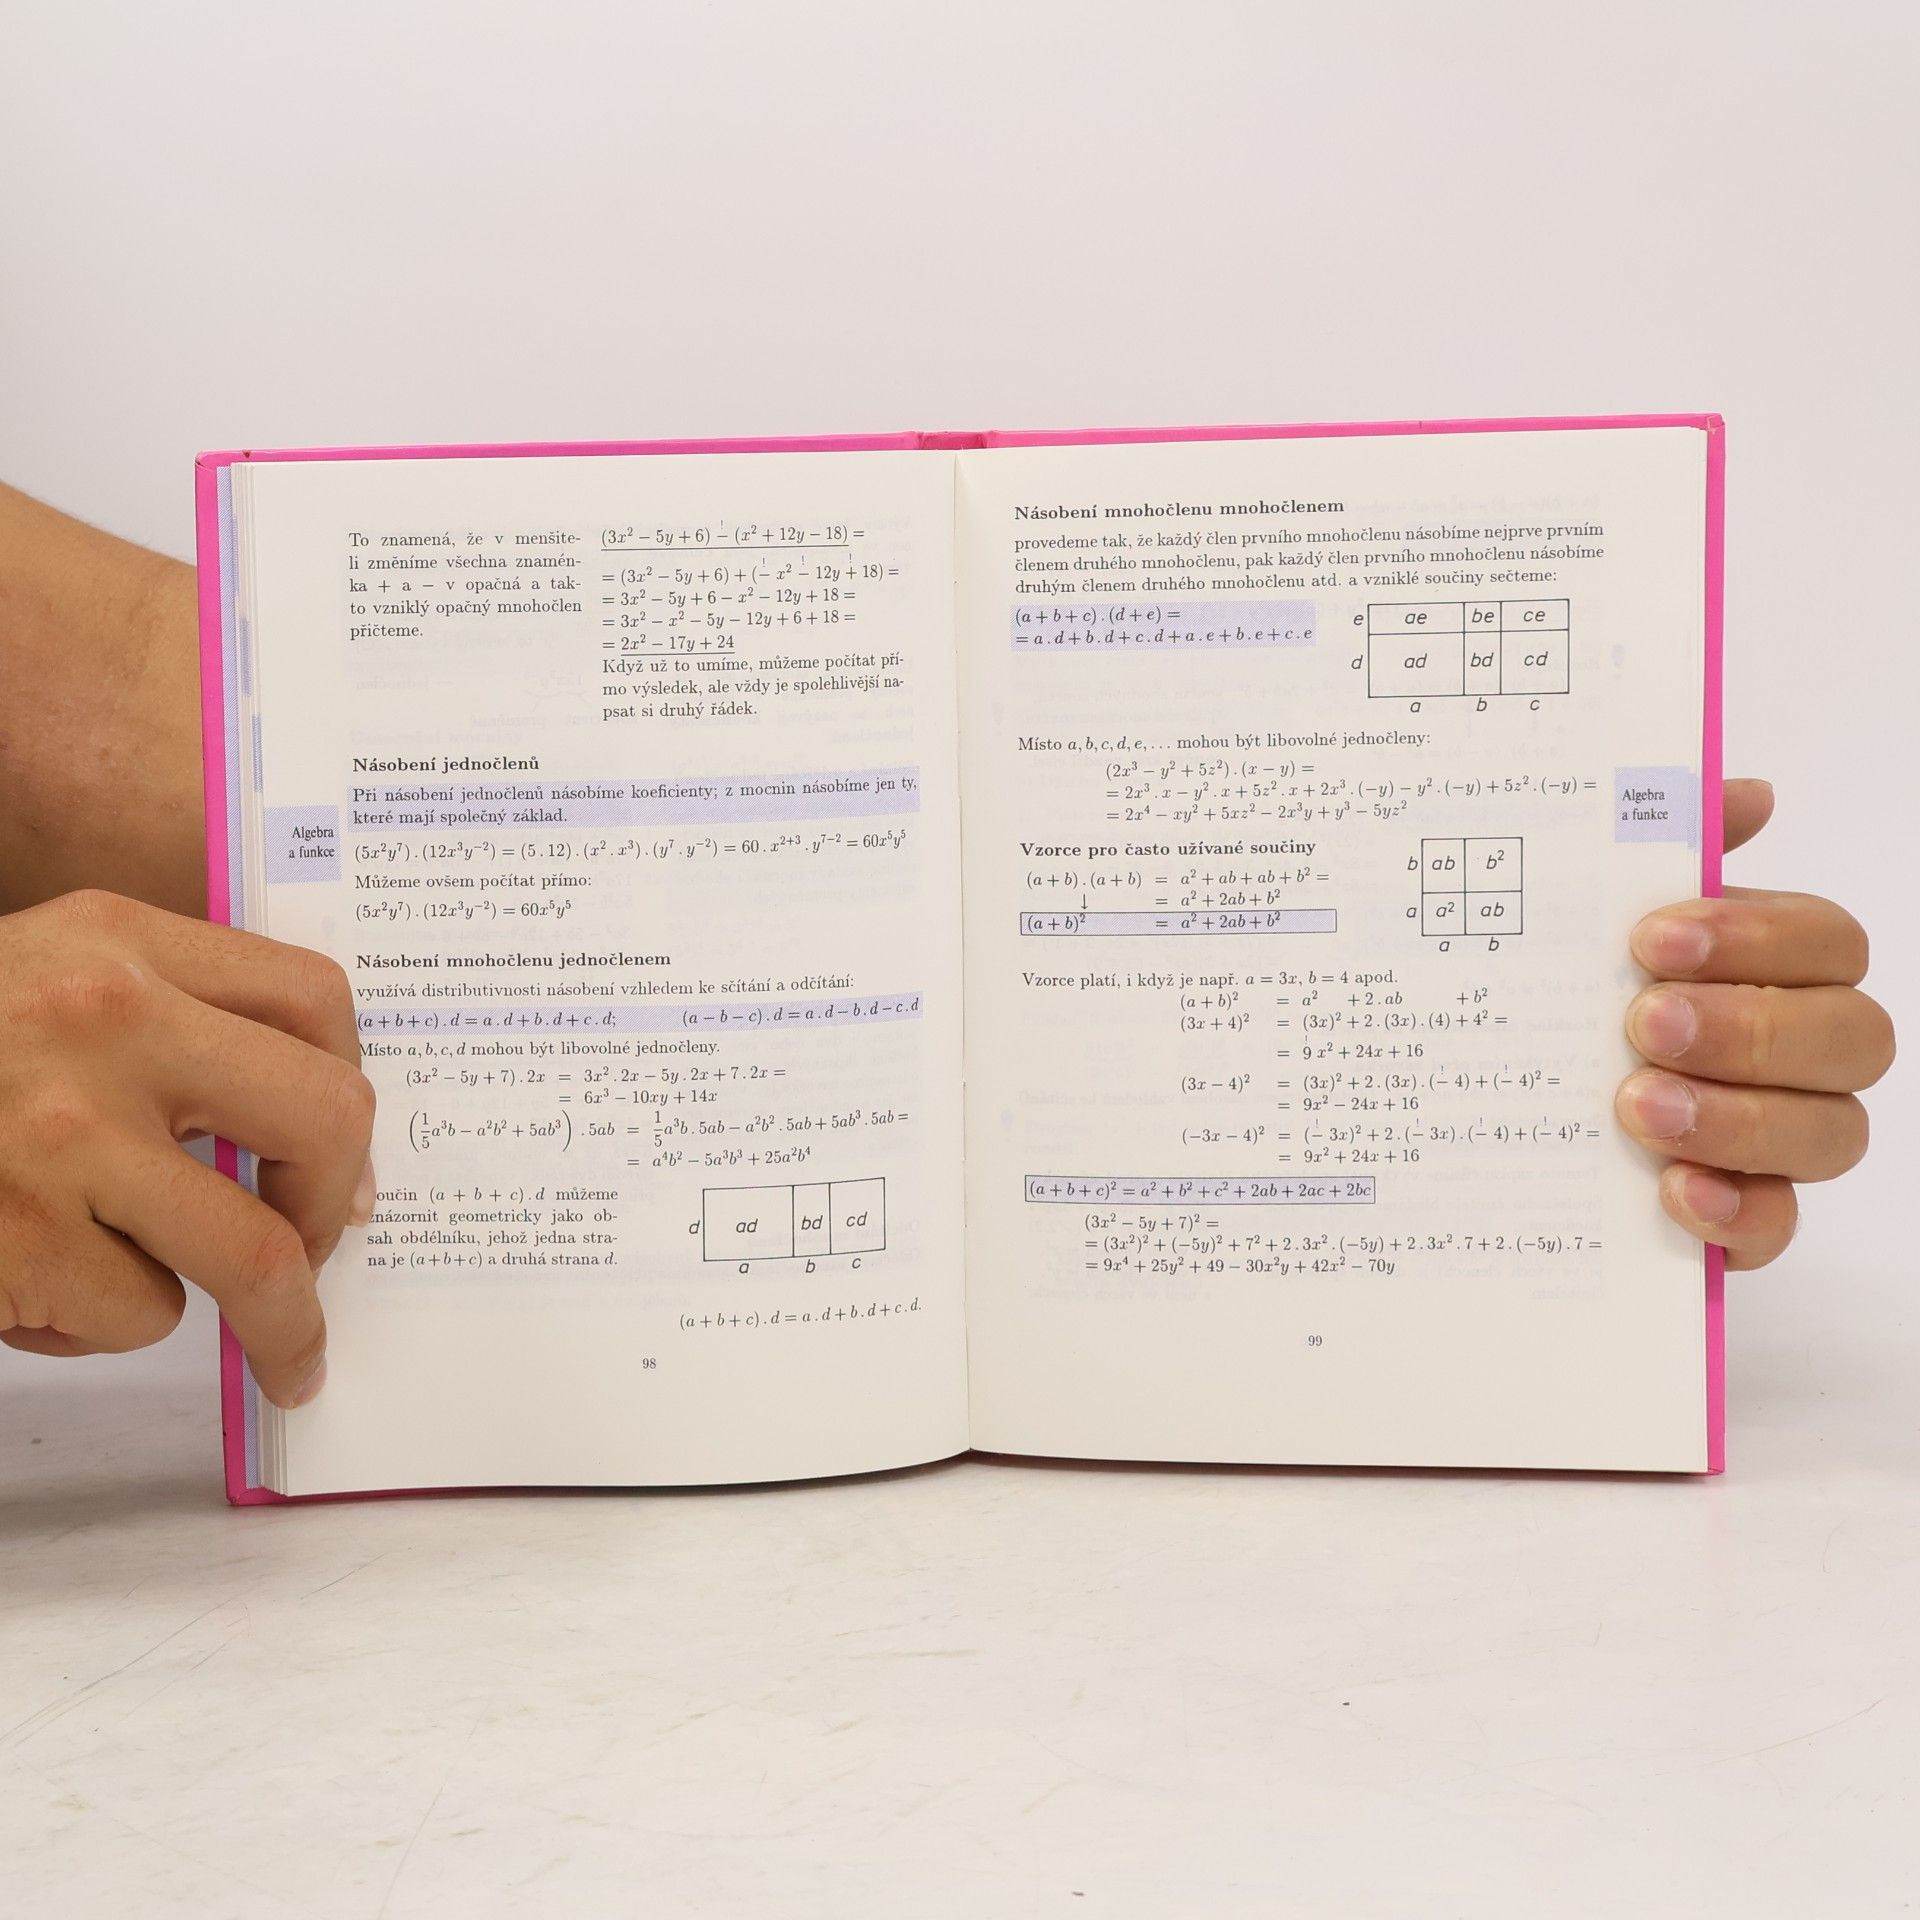 To znamená, že v menšite-
li změníme všechna znamén-
ka + a − v opačná a tak-
to vzniklý opačný mnohočlen
přičteme.
(3x² − 5y + 6) − (x² + 12y − 18) =
= (3x² − 5y + 6) + (− x² − 12y + 18) =
= 3x² − 5y + 6 − x² − 12y + 18 =
= 3x² − x² − 5y − 12y + 6 + 18 =
= 2x² − 17y + 24
Když už to umíme, můžeme počítat pří-
mo výsledek, ale vždy je spolehlivější na-
psat si druhý řádek.
Násobení jednočlenů
Při násobení jednočlenů násobíme koeficienty; z mocnin násobíme jen ty,
které mají společný základ.
Algebra
a funkce
(5x²y⁷) . (12x³y⁻²) = (5 . 12) . (x² . x³) . (y⁷ . y⁻²) = 60 . x²⁺³ . y⁷⁻² = 60x⁵y⁵
Můžeme ovšem počítat přímo:
(5x²y⁷) . (12x³y⁻²) = 60x⁵y⁵
Násobení mnohočlenu jednočlenem
využívá distributivnosti násobení vzhledem ke sčítání a odčítání:
(a + b + c) . d = a . d + b . d + c . d; (a − b − c) . d = a . d − b . d − c . d
Místo a, b, c, d mohou být libovolné jednočleny.
(3x² − 5y + 7) . 2x = 3x² . 2x − 5y . 2x + 7 . 2x =
= 6x³ − 10xy + 14x
(1/5 a³b − a²b² + 5ab³) . 5ab = 1/5 a³b . 5ab − a²b² . 5ab + 5ab³ . 5ab =
= a⁴b² − 5a³b³ + 25a²b⁴
oučin (a + b + c) . d můžeme
znázornit geometricky jako ob-
sah obdélníku, jehož jedna stra-
na je (a + b + c) a druhá strana d.
d ad bd cd
a b c
(a + b + c) . d = a . d + b . d + c . d.
98
Násobení mnohočlenu mnohočlenem
provedeme tak, že každý člen prvního mnohočlenu násobíme nejprve prvním
členem druhého mnohočlenu, pak každý člen prvního mnohočlenu násobíme
druhým členem druhého mnohočlenu atd. a vzniklé součiny sečteme:
(a + b + c) . (d + e) =
= a . d + b . d + c . d + a . e + b . e + c . e
e ae be ce
d ad bd cd
a b c
Místo a, b, c, d, e, . . . mohou být libovolné jednočleny:
(2x³ − y² + 5z²) . (x − y) =
= 2x³ . x − y² . x + 5z² . x + 2x³ . (−y) − y² . (−y) + 5z² . (−y) =
= 2x⁴ − xy² + 5xz² − 2x³y + y³ − 5yz²
Algebra
a funkce
Vzorce pro často užívané součiny
(a + b) . (a + b) = a² + ab + ab + b² =
↓ = a² + 2ab + b²
(a + b)² = a² + 2ab + b²
b ab b²
a a² ab
a b
Vzorce platí, i když je např. a = 3x, b = 4 apod.
(a + b)² = a² + 2 . ab + b²
(3x + 4)² = (3x)² + 2 . (3x) . (4) + 4² =
= 9 x² + 24x + 16
(3x − 4)² = (3x)² + 2 . (3x) . (− 4) + (− 4)² =
= 9x² − 24x + 16
(−3x − 4)² = (− 3x)² + 2 . (− 3x) . (− 4) + (− 4)² =
= 9x² + 24x + 16
(a + b + c)² = a² + b² + c² + 2ab + 2ac + 2bc
(3x² − 5y + 7)² =
= (3x²)² + (−5y)² + 7² + 2 . 3x² . (−5y) + 2 . 3x² . 7 + 2 . (−5y) . 7 =
= 9x⁴ + 25y² + 49 − 30x²y + 42x² − 70y
99